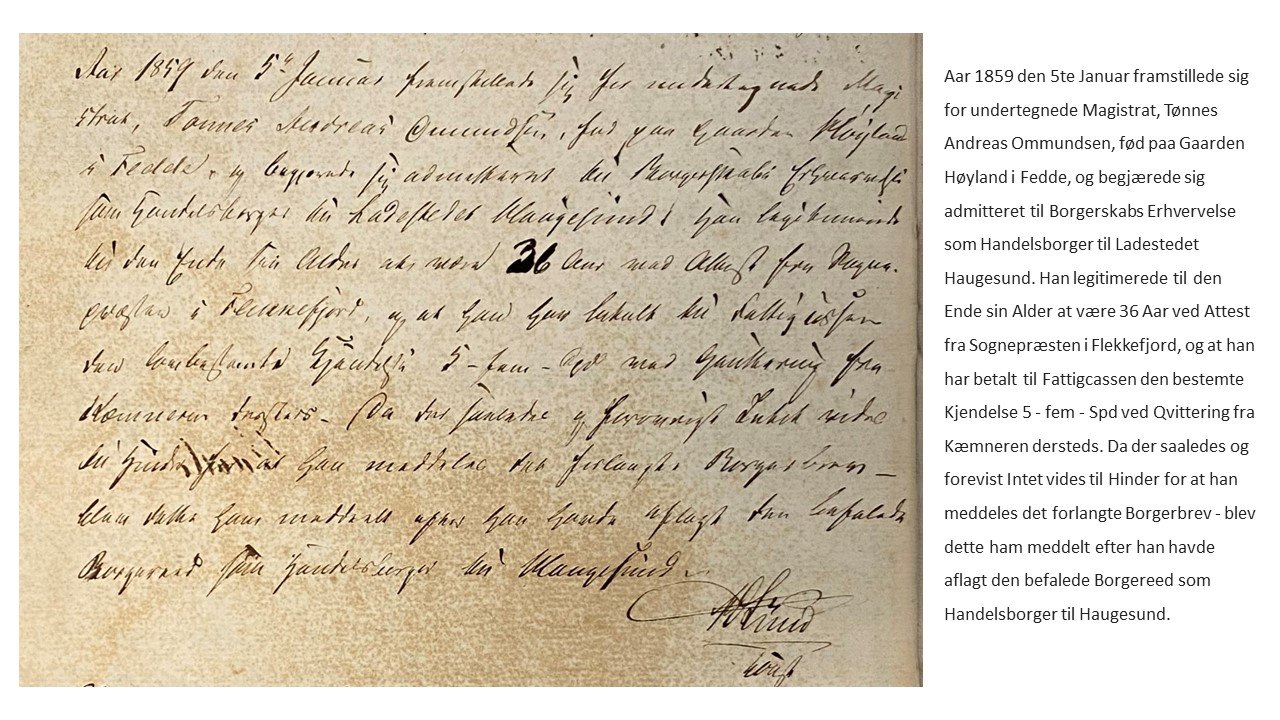 Aar 1859 den 5te Januar fremstillede sig for undertegnede Magi
strat, Tønnes Andreas Omundsen, fød paa Gaarden Høyland
i Fedde, og begjærede sig admitteret til Borgerskabs Erhvervelse
som Handelsborger til Ladestedet Haugesund. Han legitimerede
til den Ende sin Alder at være 36 Aar ved Attest fra Sogne-
præsten i Flekkefjord, og at han har betalt til Fattigcassen
den bestemte Kjendelse 5 - fem - Spd ved Qvittering fra
Kæmneren dersteds. Da der saaledes og forøvrigt Intet vides
til Hinder for at han meddeles det forlangte Borgerbrev -
blev dette ham meddeelt efter han havde aflagt den befalede
Borgereed som Handelsborger til Haugesund.
Lund
konst
Aar 1859 den 5te Januar framstillede sig
for undertegnede Magistrat, Tønnes
Andreas Ommundsen, fød paa Gaarden
Høyland i Fedde, og begjærede sig
admitteret til Borgerskabs Erhvervelse
som Handelsborger til Ladestedet
Haugesund. Han legitimerede til den
Ende sin Alder at være 36 Aar ved Attest
fra Sognepræsten i Flekkefjord, og at han
har betalt til Fattigcassen den bestemte
Kjendelse 5 - fem - Spd ved Qvittering fra
Kæmneren dersteds. Da der saaledes og
forevist Intet vides til Hinder for at han
meddeles det forlangte Borgerbrev - blev
dette ham meddelt efter han havde
aflagt den befalede Borgereed som
Handelsborger til Haugesund.